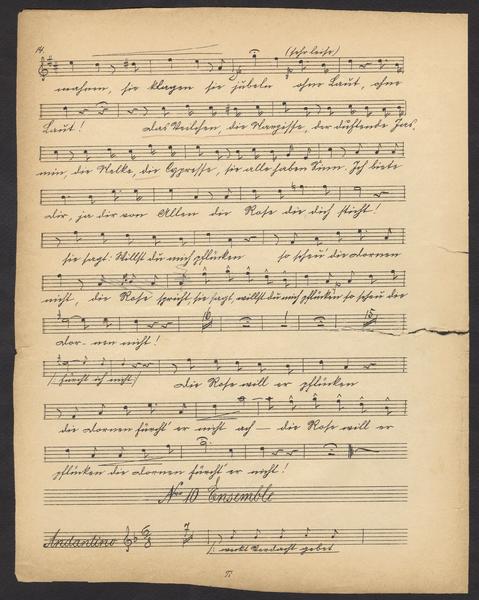 14.
(sehr leise)
mahnen, sie klagen sie jubeln ohne Laut, ohne
Laut! das Veilchen, die Narzisse, der duftende Jas-
min, die Nelke, die Cypresse, sie alle haben Sinn. Ich biete
dir, ja dir von Allen die Rose die dich sticht!
sie sagt: Willst du mich pflücken so scheu' die Dornen
nicht, die Rose spricht, sie sagt, willst du mich pflücken so scheu die
16 1 15
Dor- nen nicht!
(fürcht ich nicht) die Rose will er pflücken
die Dornen fürcht' er nicht ach — die Rose will er
pflücken die Dornen fürcht' er nicht!
No 10 Ensemble
Andantino 6 8 7
weckt Verdacht